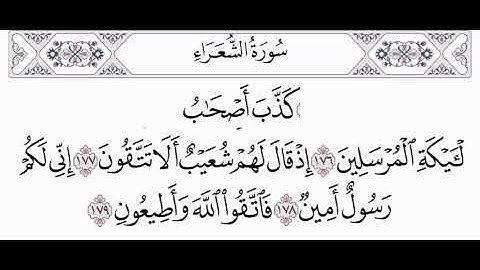 سُورَةُ الشُّعَرَاءِ
كَذَّبَ أَصْحَٰبُ
لْـَٔيْكَةِ ٱلْمُرْسَلِينَ ١٧٦ إِذْ قَالَ لَهُمْ شُعَيْبٌ أَلَا تَتَّقُونَ ١٧٧ إِنِّى لَكُمْ
رَسُولٌ أَمِينٌ ١٧٨ فَٱتَّقُوا۟ ٱللَّهَ وَأَطِيعُونِ ١٧٩